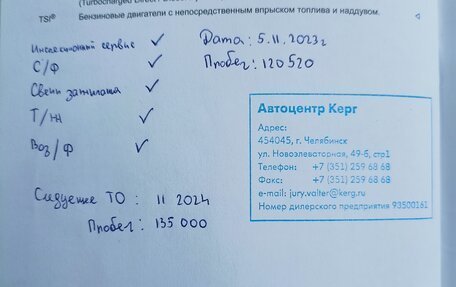 (Turbocharged
TSI® Бензиновые двигатели с непосредственным впрыском топлива и наддувом.
Инспекционный сервис ✓ Дата: 5.11.2023г
С/Ф ✓ Пробег: 120 520
Свечи зажигания ✓
Т/ ✓
Воз/Ф ✓
Следующее ТО : 11 2024
Пробег: 135 000
Автоцентр Керг
Адрес:
454045, г. Челябинск
ул. Новоэлеваторная, 49-б, стр1
Телефон: +7 (351) 259 68 68
Факс: +7 (351) 259 68 68
e-mail: jury.valter@kerg.ru
Номер дилерского предприятия 93500161